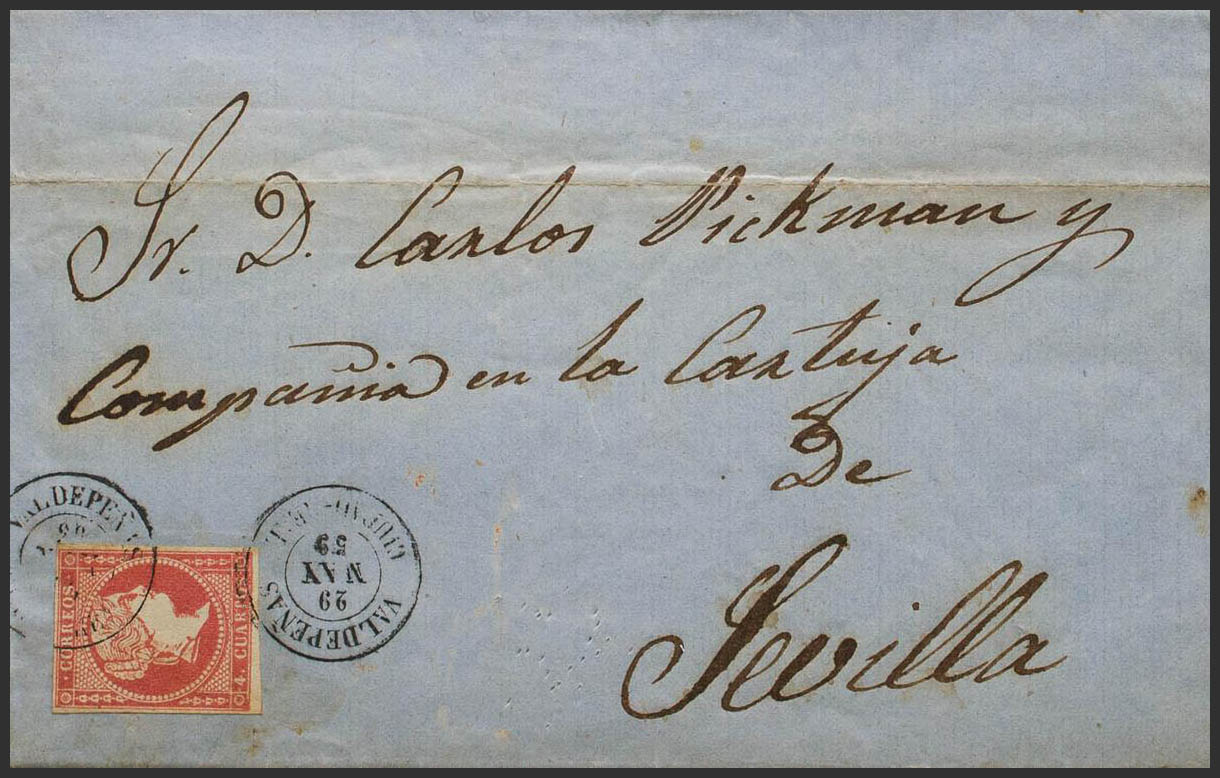 Sr. D. Carlos Pickman y
Compañia en la Cartuja
De
Sevilla
VALDEPEÑAS
CORREOS
4 CUARTOS
VALDEPEÑAS
29
MAY
59
CIUDAD-REAL